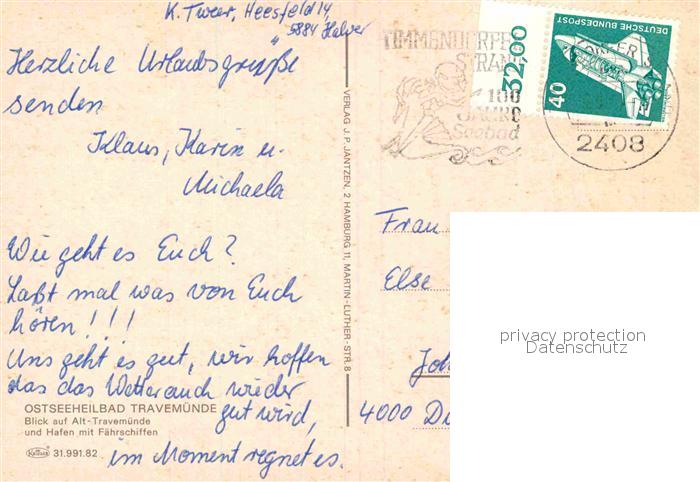 K. Tweer, Heesfeld 14,
5884 Halver
Herzliche Urlaubsgrüße
senden
Klaus, Karin u.
Michaela
Wie geht es Euch?
Laßt mal was von Euch
hören!!!
Uns geht es gut, wir hoffen
das das Wetter auch wieder
gut wird,
im Moment regnet es.
OSTSEEHEILBAD TRAVEMÜNDE
Blick auf Alt-Travemünde
und Hafen mit Fährschiffen
Krüger 31.991.82
VERLAG J. P. JANTZEN, 2 HAMBURG 11, MARTIN-LUTHER-STR. 8
TIMMENDORFER
STRAND
100
JAHRE
Seebad
32,00
DEUTSCHE BUNDESPOST
40
2408
Frau
Else
Joh
4000 Dü
privacy protection
Datenschutz